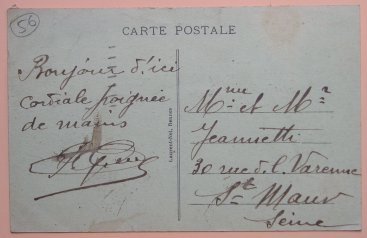 56
CARTE POSTALE
Bonjour d'ici
Cordiale poignée
de mains
Laurent-Nel, Rennes
Mme et Mr
Jeannetti
30 rue d. l. Varenne
St Maur
Seine